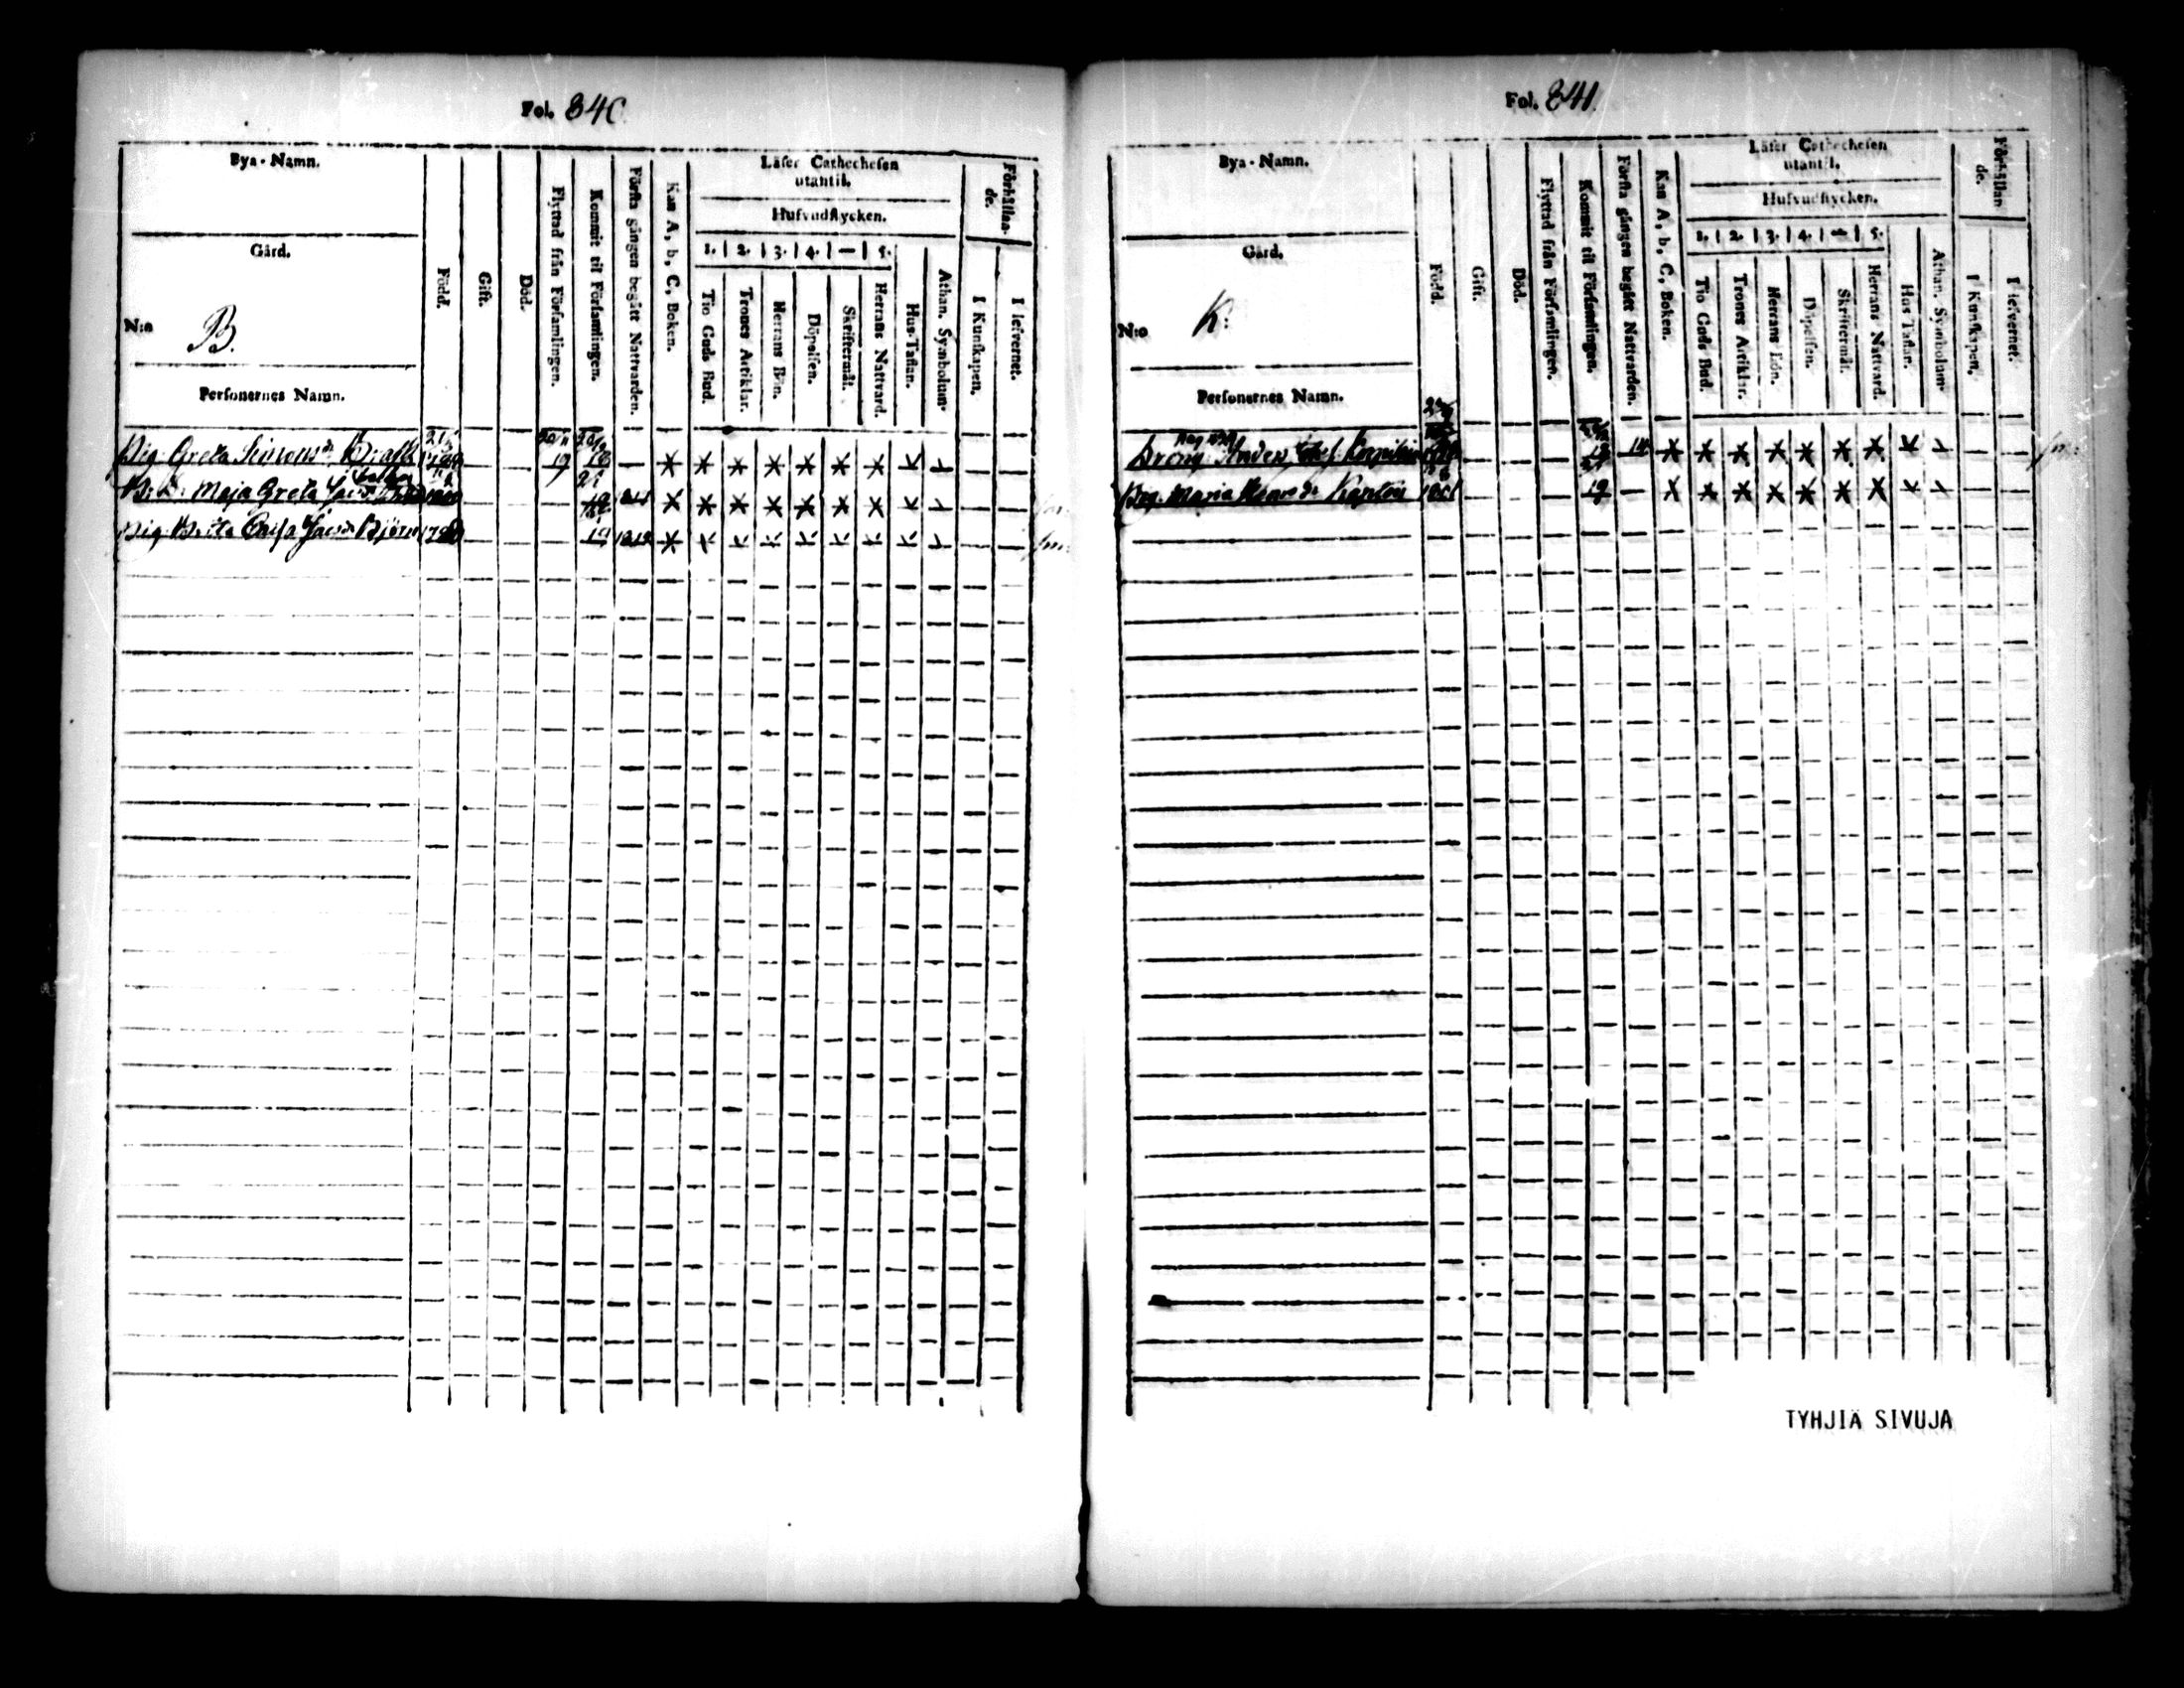 Fol. 840
Bya-Namn.
Gård.
N:o B.
Personernes Namn.
Född.
Gift.
Död.
Flyttad från Församlingen.
Kommit til Församlingen.
Första gången begått Nattvarden.
Kan A, b, C, Boken.
Läser Cathechesen utantil.
Hufvudstycken.
1. 2. 3. 4. — 5.
Tio Guds Bud.
Trones Artiklar.
Herrans Bön.
Döpelsen.
Skriftermål.
Herrans Nattvard.
Hus-Taflan.
Athan. Symbolum.
Förhållande.
I Kunskapen.
I lefvernet.
Pig. Greta Simonsdr 19
Maja Greta
Pig. Brita Cajsa Jacsdr Björn 19
Fol. 841.
Bya-Namn.
Gård.
N:o K:
Personernes Namn.
Född.
Gift.
Död.
Flyttad från Församlingen.
Kommit til Församlingen.
Första gången begått Nattvarden.
Kan A, b, C, Boken.
Läser Cathechesen utantil.
Hufvudstycken.
1. 2. 3. 4. — 5.
Tio Guds Bud.
Trones Artiklar.
Herrans Bön.
Döpelsen.
Skriftermål.
Herrans Nattvard.
Hus Taflan.
Athan. Symbolum.
Förhållande.
I Kunskapen.
I lefvernet.
Dräng Anders 14
Pig. Maria 19
TYHJIÄ SIVUJA